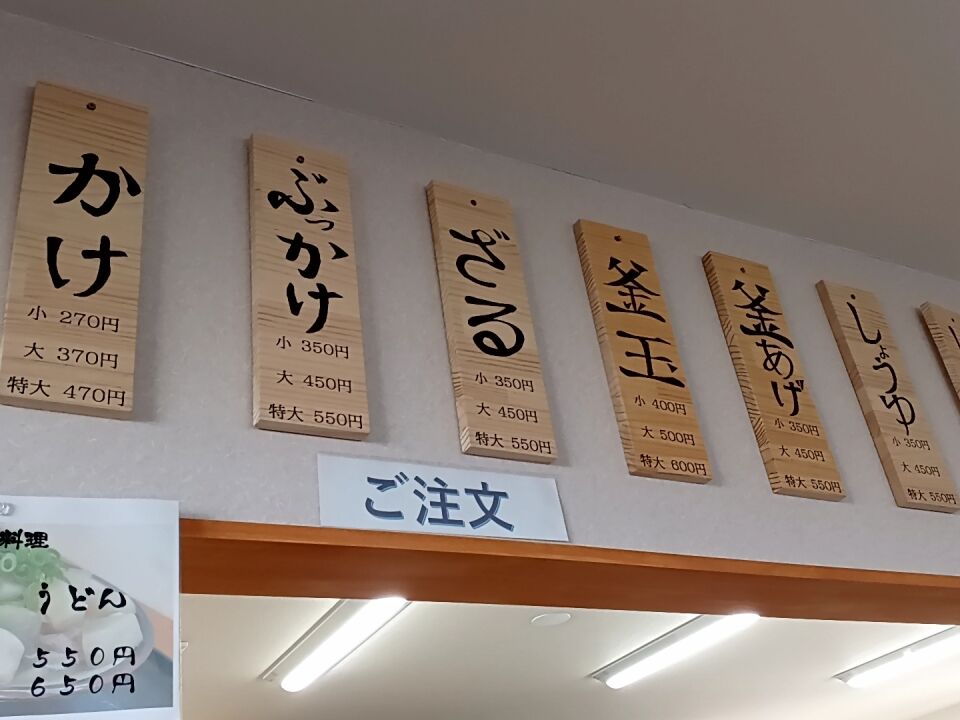 かけ
小 270円
大 370円
特大 470円
ぶっかけ
小 350円
大 450円
特大 550円
ざる
小 350円
大 450円
特大 550円
釜玉
小 400円
大 500円
特大 600円
釜あげ
小 350円
大 450円
特大 550円
しょうゆ
小 350円
大 450円
特大 550円
ご注文
料理
うどん
550円
650円